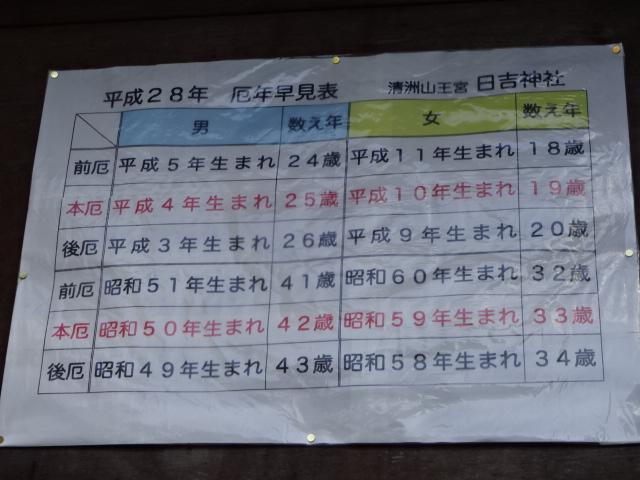 平成２８年　厄年早見表　清洲山王宮 日吉神社
男　数え年　女　数え年
前厄　平成５年生まれ　２４歳　平成１１年生まれ　１８歳
本厄　平成４年生まれ　２５歳　平成１０年生まれ　１９歳
後厄　平成３年生まれ　２６歳　平成９年生まれ　２０歳
前厄　昭和５１年生まれ　４１歳　昭和６０年生まれ　３２歳
本厄　昭和５０年生まれ　４２歳　昭和５９年生まれ　３３歳
後厄　昭和４９年生まれ　４３歳　昭和５８年生まれ　３４歳